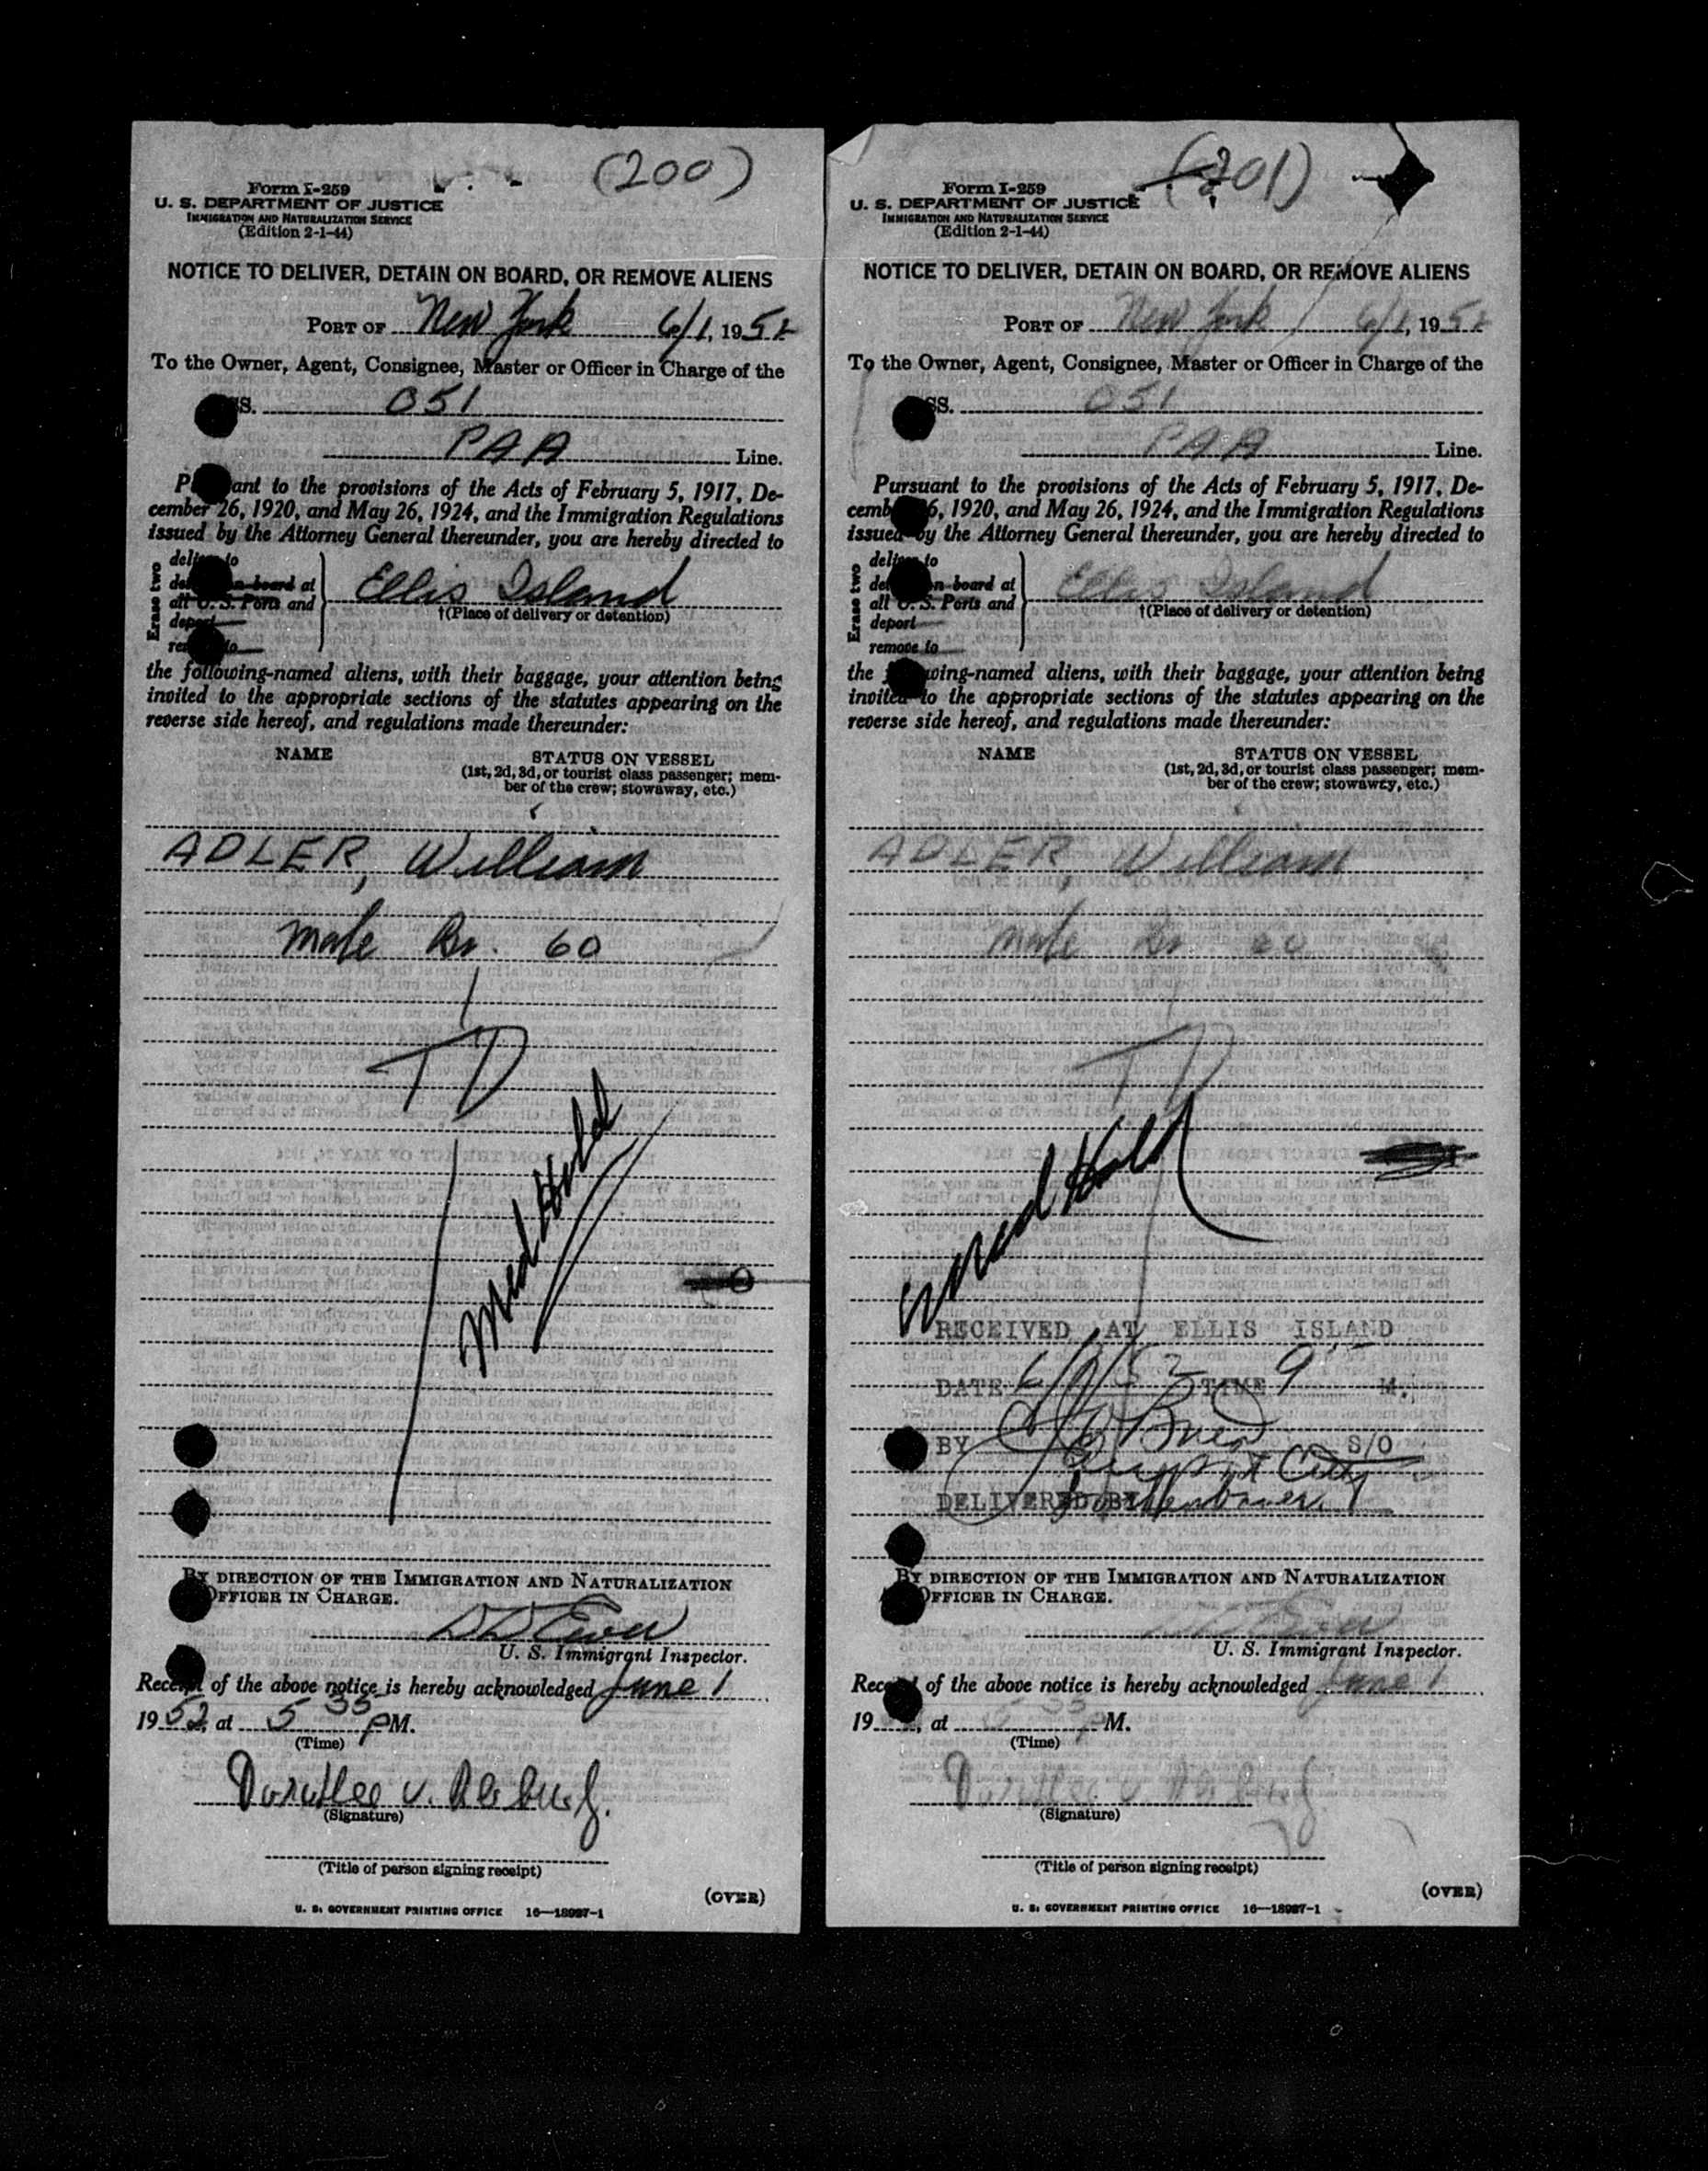 (200)
Form I-259
U. S. DEPARTMENT OF JUSTICE
IMMIGRATION AND NATURALIZATION SERVICE
(Edition 2-1-44)
NOTICE TO DELIVER, DETAIN ON BOARD, OR REMOVE ALIENS
PORT OF New York 6/1, 1952
To the Owner, Agent, Consignee, Master or Officer in Charge of the
SS. 051
PAA Line.
Pursuant to the provisions of the Acts of February 5, 1917, De-
cember 26, 1920, and May 26, 1924, and the Immigration Regulations
issued by the Attorney General thereunder, you are hereby directed to
Erase two
deliver to
on board at
all U. S. Ports and
deport
to
Ellis Island
†(Place of delivery or detention)
the following-named aliens, with their baggage, your attention being
invited to the appropriate sections of the statutes appearing on the
reverse side hereof, and regulations made thereunder:
NAME STATUS ON VESSEL
(1st, 2d, 3d, or tourist class passenger; mem-
ber of the crew; stowaway, etc.)
ADLER, William
male Br. 60
TD
Med Hold
BY DIRECTION OF THE IMMIGRATION AND NATURALIZATION
OFFICER IN CHARGE.
U. S. Immigrant Inspector.
Receipt of the above notice is hereby acknowledged June 1
1952, at 5 35 PM.
(Time)
(Signature)
(Title of person signing receipt)
(OVER)
U. S. GOVERNMENT PRINTING OFFICE 16—18987-1
(201)
Form I-259
U. S. DEPARTMENT OF JUSTICE
IMMIGRATION AND NATURALIZATION SERVICE
(Edition 2-1-44)
NOTICE TO DELIVER, DETAIN ON BOARD, OR REMOVE ALIENS
PORT OF New York 6/1, 1952
To the Owner, Agent, Consignee, Master or Officer in Charge of the
SS. 051
PAA Line.
Pursuant to the provisions of the Acts of February 5, 1917, De-
cember 26, 1920, and May 26, 1924, and the Immigration Regulations
issued by the Attorney General thereunder, you are hereby directed to
Erase two
deliver to
on board at
all U. S. Ports and
deport
remove to
Ellis Island
†(Place of delivery or detention)
the following-named aliens, with their baggage, your attention being
invited to the appropriate sections of the statutes appearing on the
reverse side hereof, and regulations made thereunder:
NAME STATUS ON VESSEL
(1st, 2d, 3d, or tourist class passenger; mem-
ber of the crew; stowaway, etc.)
ADLER, William
male Br. 60
TD
Med Hold
RECEIVED AT ELLIS ISLAND
DATE 6/1/52 TIME 9 M.
BY O'Brien S/O
DELIVERED BY
BY DIRECTION OF THE IMMIGRATION AND NATURALIZATION
OFFICER IN CHARGE.
U. S. Immigrant Inspector.
Receipt of the above notice is hereby acknowledged June 1
19 , at 5 35 P M.
(Time)
(Signature)
(Title of person signing receipt)
(OVER)
U. S. GOVERNMENT PRINTING OFFICE 16—18987-1